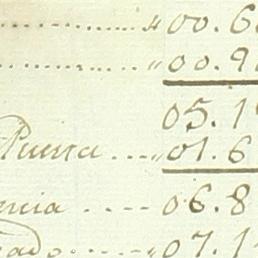 ........... „00.6
........... „00.9
05.1
Puerta ....„01.6
encia .... 06.8
gado.....„07.1